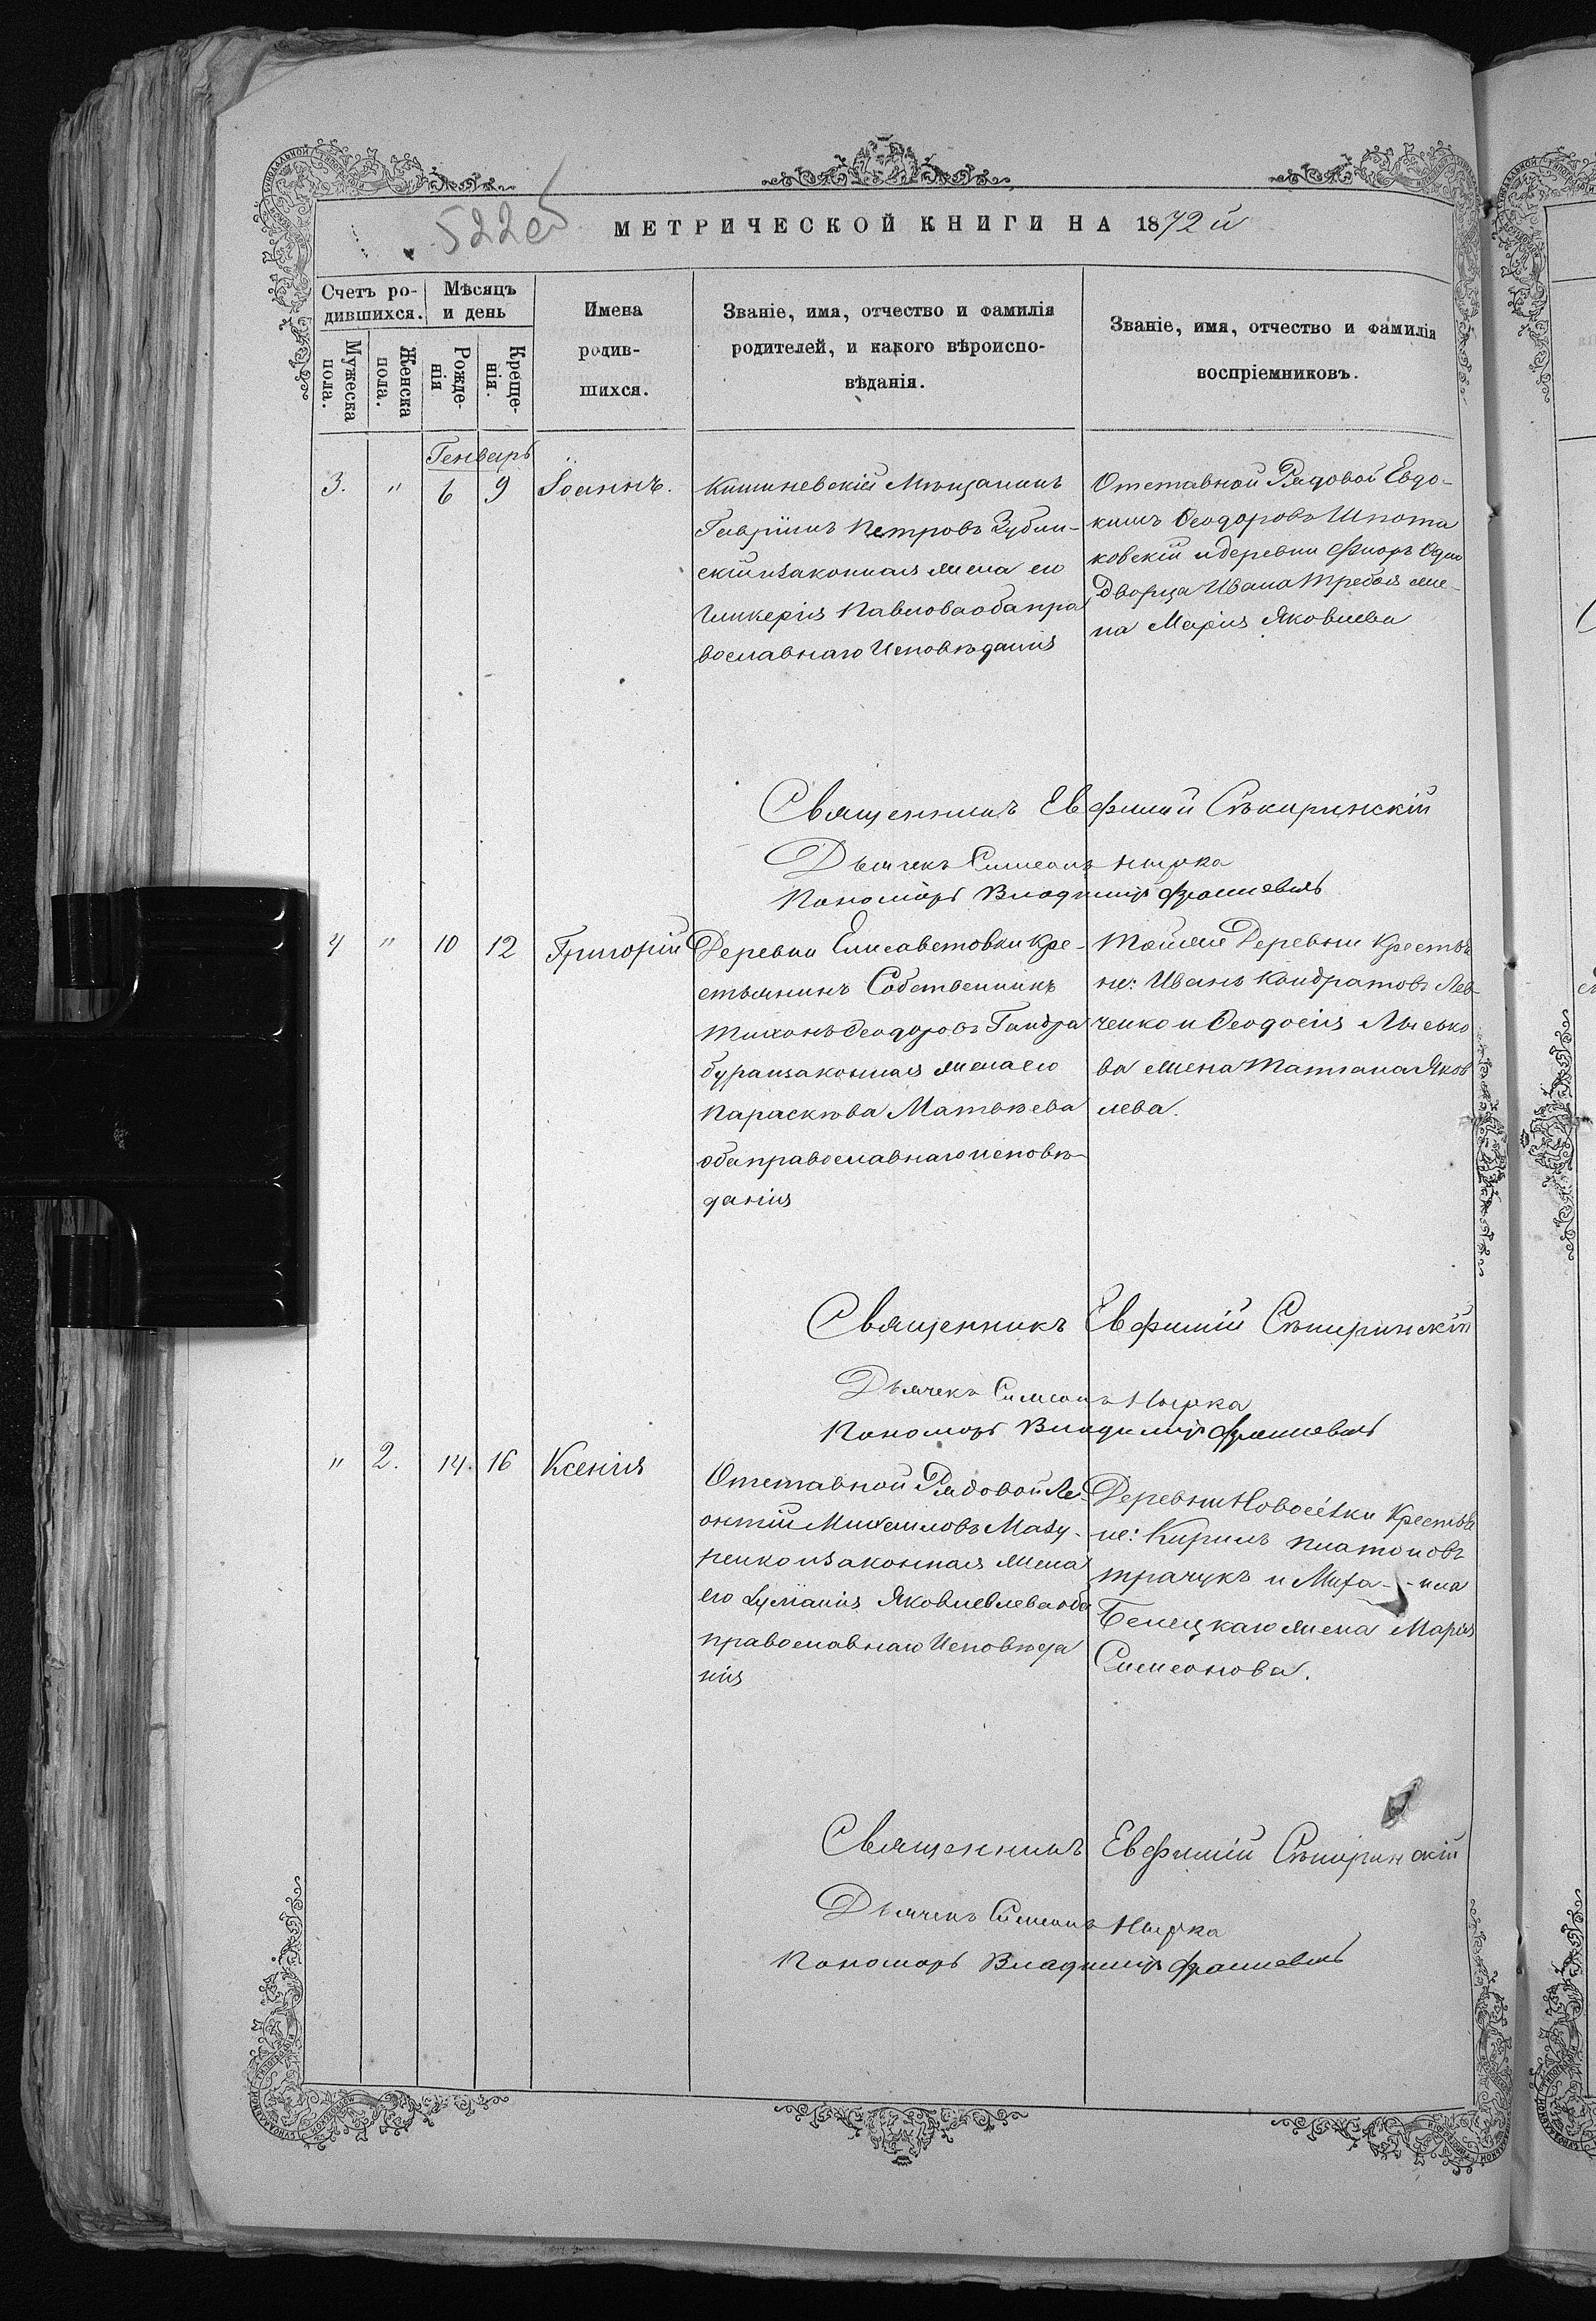 522об
МЕТРИЧЕСКОЙ КНИГИ НА 1872 й
Счетъ ро-
дившихся.
Мужеска
пола.
Женска
пола.
Мѣсяцъ
и день
Рожде-
нія
Креще-
нія.
Имена
родив-
шихся.
Званіе, имя, отчество и фамилія
родителей, и какого вѣроиспо-
вѣданія.
Званіе, имя, отчество и фамилія
воспріемниковъ.
Генварь
3. " 6 9 Іоаннъ.
Кишиневскій Мѣщанинъ
Гавріилъ Петровъ Зублин-
скій изаконная жена его
Гликерія Павлова оба пра
вославнаго Исповѣданія
Отставной Рядовой Евдо-
кимъ Ѳеодоровъ Шпота
ковскій и деревни Фиоръ Одно
Дворца Ивана Требоя же-
на Марія Яковлева
Священникъ Евфимій Сѣкиринскій
Дьячекъ Симеонъ
Пономорь Владиміръ
4 " 10 12 Григорій
Деревни Елисаветовки Кре-
стьянинъ Собственникъ
Тихонъ Ѳеодоровъ Гандра
бура изаконная жена его
Параскѣва Матвѣева
оба православнаго исповѣ-
данія
Тойже Деревни Крестья
не: Иванъ Кондратовъ Лев-
ченко и Ѳеодосія Лысько
ва жена Татіана Яков
лева.
Священникъ Евфимій Сѣкиринскій
Дьячекъ Симеонъ
Пономорь Владиміръ
" 2. 14. 16 Ксенія
Отставной Рядовой Ле-
онтій Михаиловъ Мазу-
ренко изаконная жена
его Яковлевлева оба
православнаго Исповѣда
нія
Деревни Новосёлки Крестья
не: Кирилъ Платоновъ
Трачукъ и Миха- -ила
Белецкаго жена Марія
Симеонова.
Священникъ Евфимій Сѣкиринскій
Дьячекъ Симеонъ
Пономорь Владиміръ